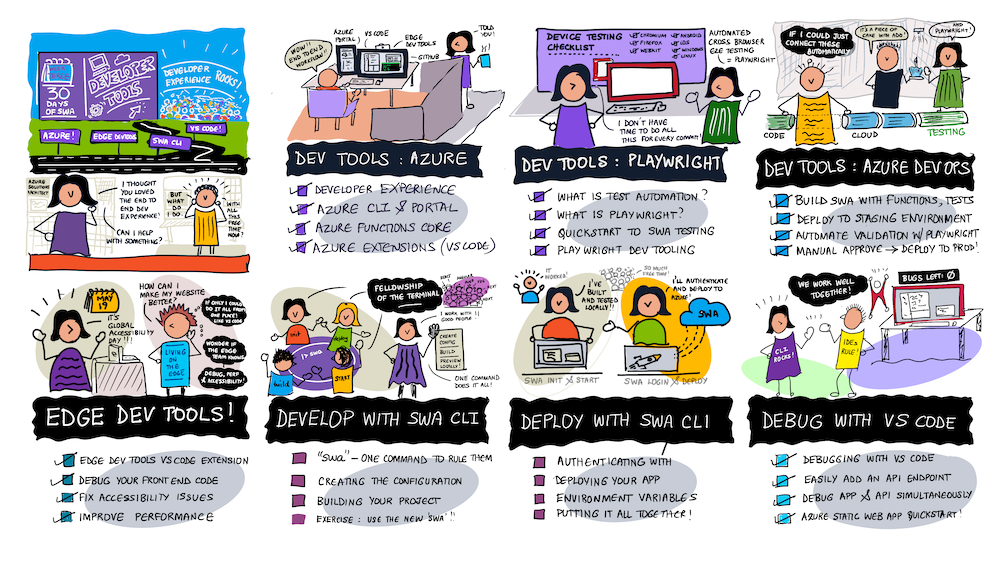 30
DAYS
OF SWA
DEVELOPER
TOOLS
DEVELOPER
EXPERIENCE ROCKS!
AZURE!
EDGE DEVTOOLS
SWA CLI
VS CODE!
AZURE
SOLUTIONS
ARCHITECT
I THOUGHT
YOU LOVED
THE END TO
END DEV
EXPERIENCE!
CAN I HELP
WITH SOMETHING?
BUT
WHAT
DO
I DO..
WITH
ALL
THIS
FREE
TIME
NOW?
WOW!
END TO END
WORKFLOW!
AZURE
PORTAL
VS CODE
EDGE
DEV TOOLS
GITHUB
TOLD
YOU!
DEV TOOLS : AZURE
DEVELOPER EXPERIENCE
AZURE CLI & PORTAL
AZURE FUNCTIONS CORE
AZURE EXTENSIONS (VS CODE)
DEVICE TESTING
CHECKLIST
CHROMIUM
FIREFOX
WEBKIT
ANDROID
IOS
WINDOWS
LINUX
AUTOMATED
CROSS BROWSER
E2E TESTING
= PLAYWRIGHT
I DON'T HAVE
TIME TO DO ALL
THIS FOR EVERY COMMIT!
DEV TOOLS : PLAYWRIGHT
WHAT IS TEST AUTOMATION?
WHAT IS PLAYWRIGHT?
QUICKSTART TO SWA TESTING
PLAYWRIGHT DEV TOOLING
IF I COULD JUST
CONNECT THESE
AUTOMATICALLY
IT'S A PIECE OF
CAKE WITH ADO!
AND
PLAYWRIGHT!
CODE
CLOUD
TESTING
DEV TOOLS : AZURE DEVOPS
BUILD SWA WITH FUNCTIONS, TESTS
DEPLOY TO STAGING ENVIRONMENT
AUTOMATE VALIDATION W/ PLAYWRIGHT
MANUAL APPROVE → DEPLOY TO PROD!
MAY
19
IT'S
GLOBAL
ACCESSIBILITY
DAY!!
HOW CAN I
MAKE MY WEBSITE
BETTER?
IF ONLY I COULD
DO IT ALL FROM
ONE PLACE!
LIKE VS CODE
WONDER IF
THE EDGE
TEAM KNOWS
DEBUG, PERF
& ACCESSIBILITY!
LIVING
ON THE
EDGE
EDGE DEV TOOLS!
EDGE DEV TOOLS VS CODE EXTENSION
DEBUG YOUR FRONT END CODE
FIX ACCESSIBILITY ISSUES
IMPROVE PERFORMANCE
FELLOWSHIP
OF THE TERMINAL
init
deploy
|> swa
build
START
I WORK W/
GOOD PEOPLE
CREATE
CONFIG
BUILD
PREVIEW
LOCALLY!
ONE COMMAND
DOES IT ALL!
DEVELOP WITH SWA CLI
"SWA" - ONE COMMAND TO RULE THEM
CREATING THE CONFIGURATION
BUILDING YOUR PROJECT
EXERCISE : USE THE NEW 'SWA'!!
IT
WORKED!
I'VE
BUILT
AND TESTED
LOCALLY!!
SO MUCH
FREE TIME!
I'LL AUTHENTICATE
AND DEPLOY TO
AZURE!
SWA
SWA INIT & START
SWA LOGIN & DEPLOY
DEPLOY WITH SWA CLI
AUTHENTICATING WITH
DEPLOYING YOUR APP
ENVIRONMENT VARIABLES
PUTTING IT ALL TOGETHER!
WE WORK WELL
TOGETHER!
BUGS LEFT: 0
CLI
ROCKS!
IDEs
RULE!
DEBUG WITH VS CODE
DEBUGGING WITH VS CODE
EASILY ADD AN API ENDPOINT
DEBUG APP & API SIMULTANEOUSLY
AZURE STATIC WEB APP QUICKSTART!